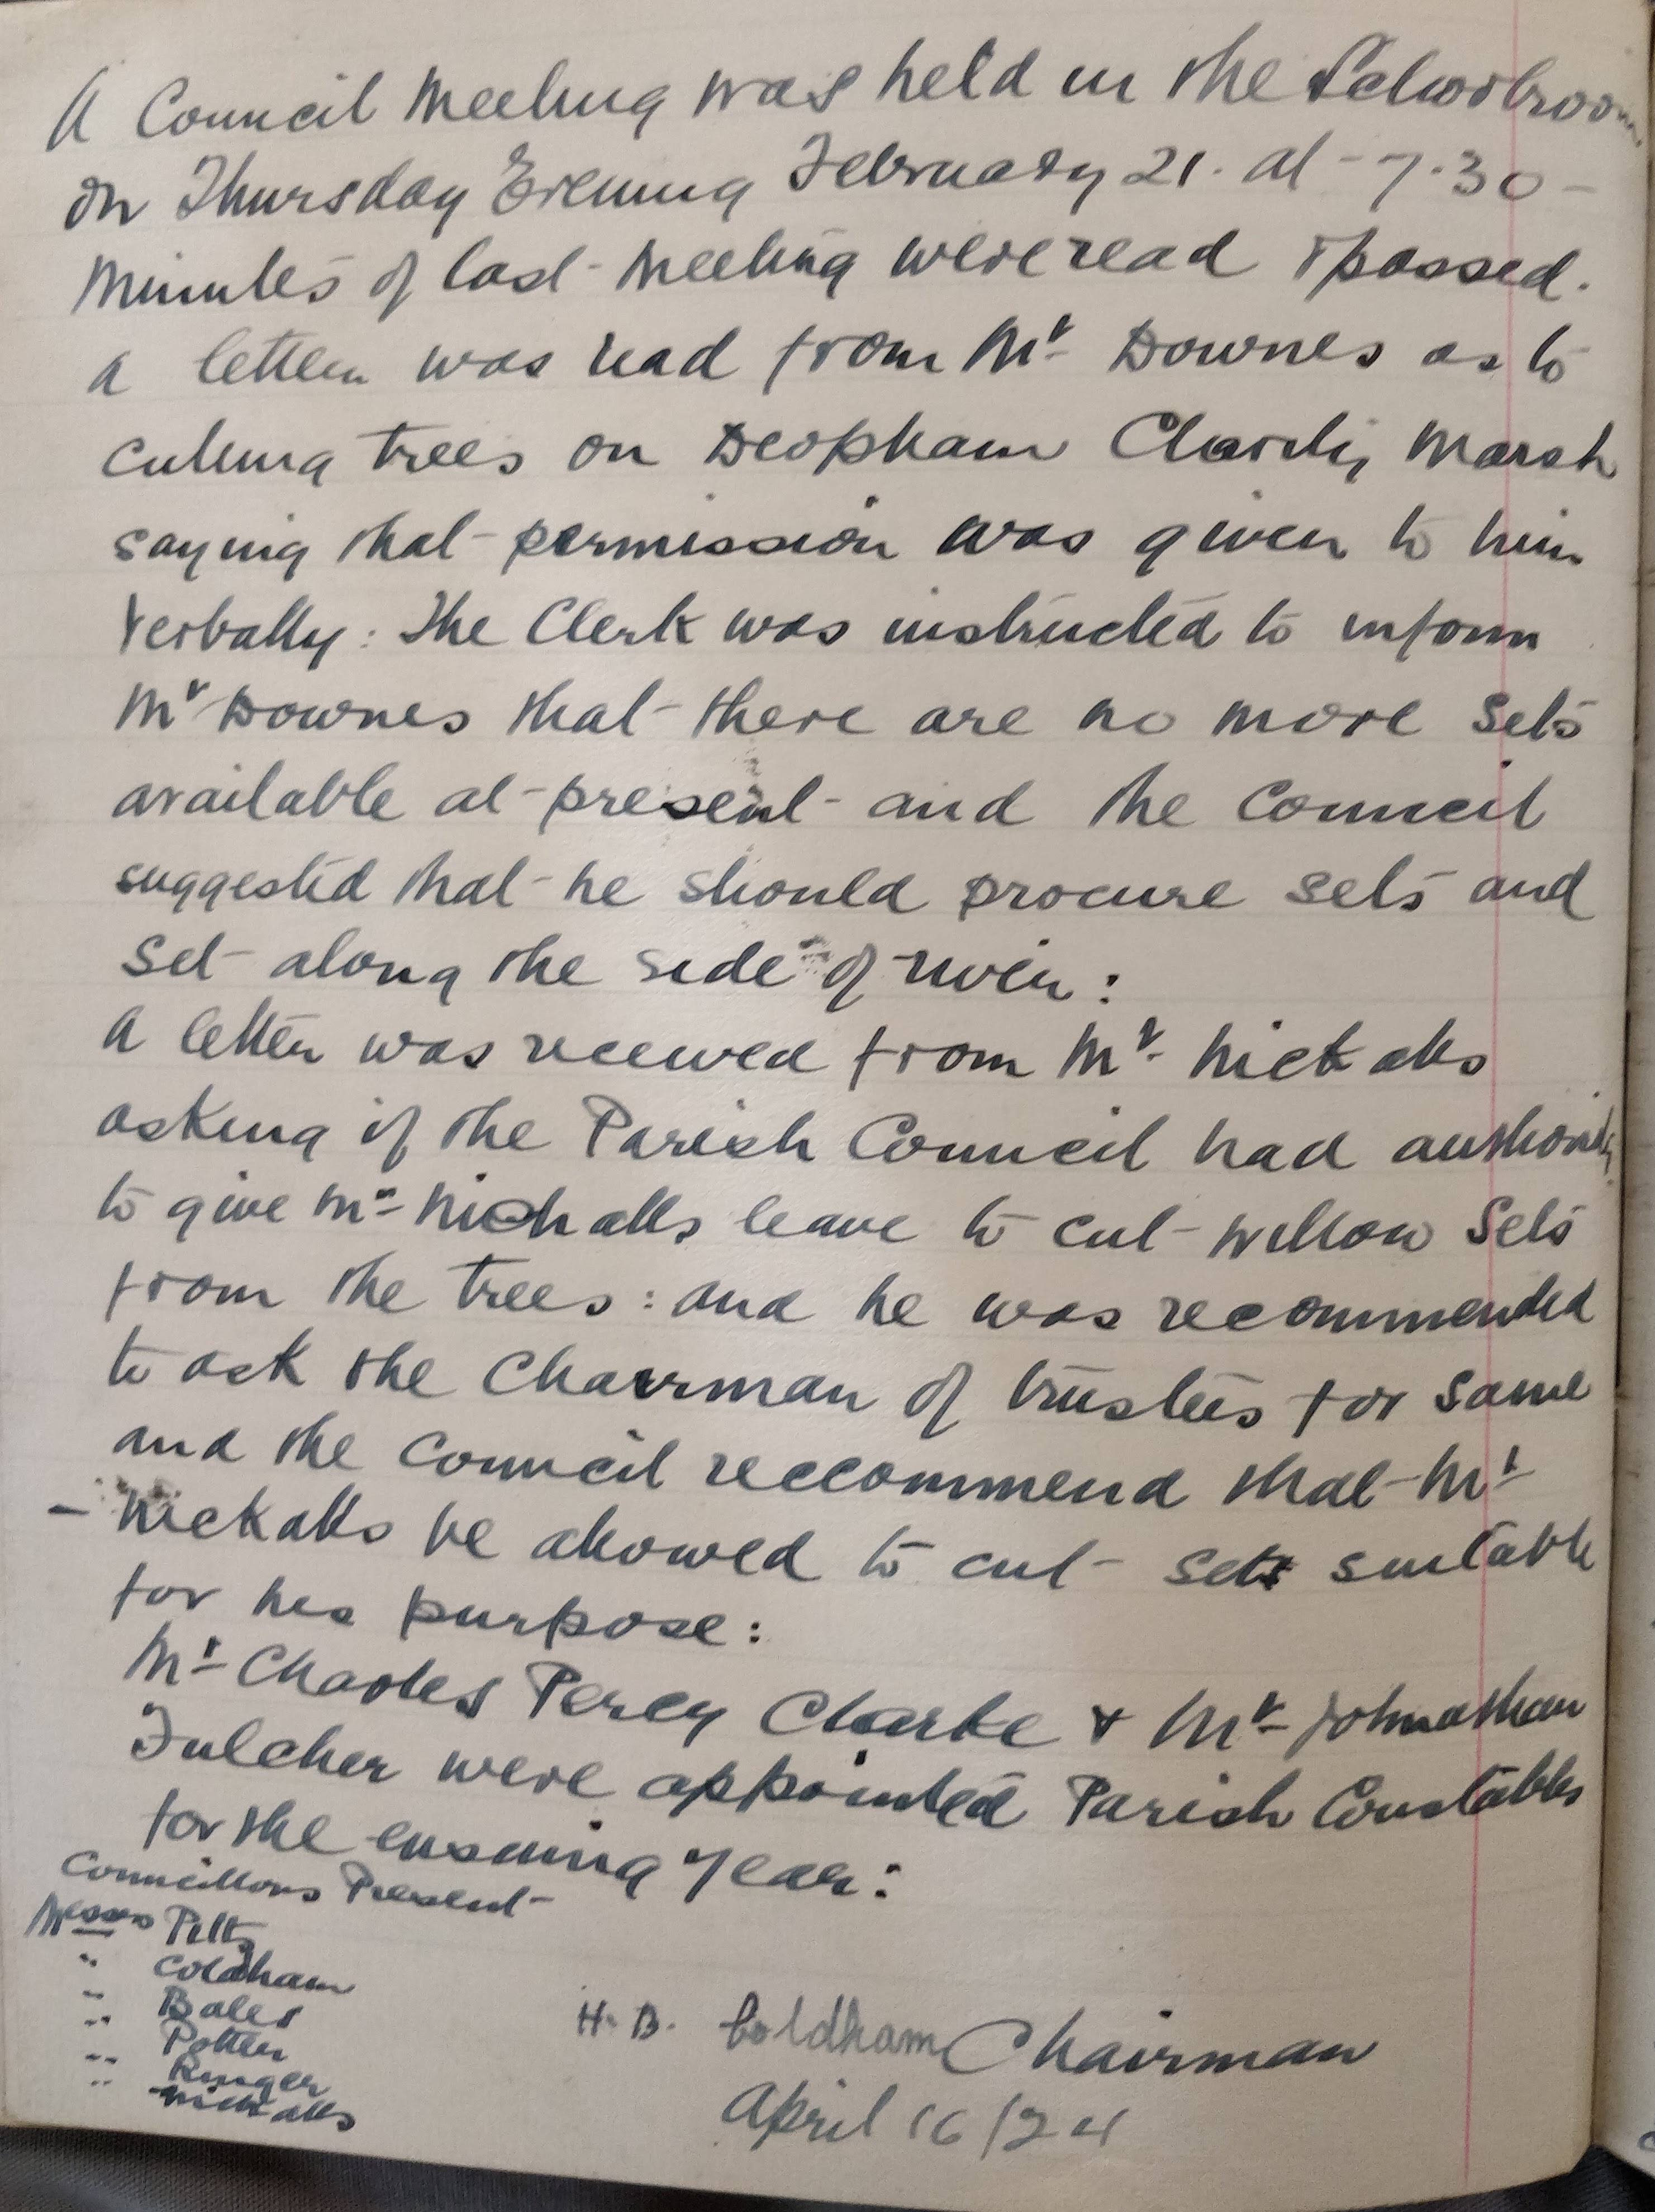 A Council Meeting was held in the Schoolroom
on Thursday Evening February 21. at 7.30 -
Minutes of last Meeting were read & passed.
A letter was read from Mr Downes as to
cutting trees on Deopham Charity Marsh
saying that permission was given to him
verbally: The Clerk was instructed to inform
Mr Downes that there are no more sets
available at present and the Council
suggested that he should procure sets and
set along the side of river:
A letter was received from Mr Nickalls
asking if the Parish Council had authority
to give Mr Nickalls leave to cut willow Sets
from the trees: and he was recommended
to ask the Chairman of trustees for same
and the Council reccommend that Mr
- Nickalls be allowed to cut sets suitable
for his purpose:
Mr Charles Percy Clarke & Mr Johnathan
Fulcher were appointed Parish Constables
for the ensuing year:
Councillors Present
Messrs Pitts
" Coldham
" Bales
" Potter
" Ringer
" Nickalls
H. B. Coldham Chairman
April 16/24